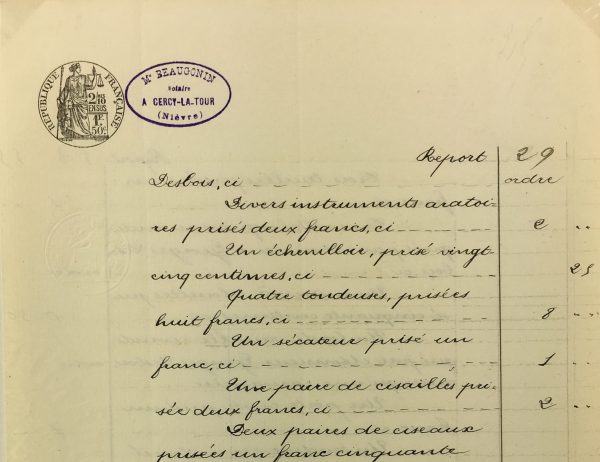 RÉPUBLIQUE FRANÇAISE
2/10 EN SUS
1F 50c
Me BEAUGONIN
Notaire
A CERCY-LA-TOUR
(Nièvre)
Report 29
Desbois, ci ordre
Divers instruments aratoi-
res prisés deux francs, ci 2 "
Un échenilloir, prisé vingt-
cinq centimes, ci 25
Quatre tondeuses, prisées
huit francs, ci 8 "
Un sécateur prisé un
franc, ci 1 "
Une paire de cisailles pri-
sée deux francs, ci 2 "
Deux paires de ciseaux
prisées un franc cinquante